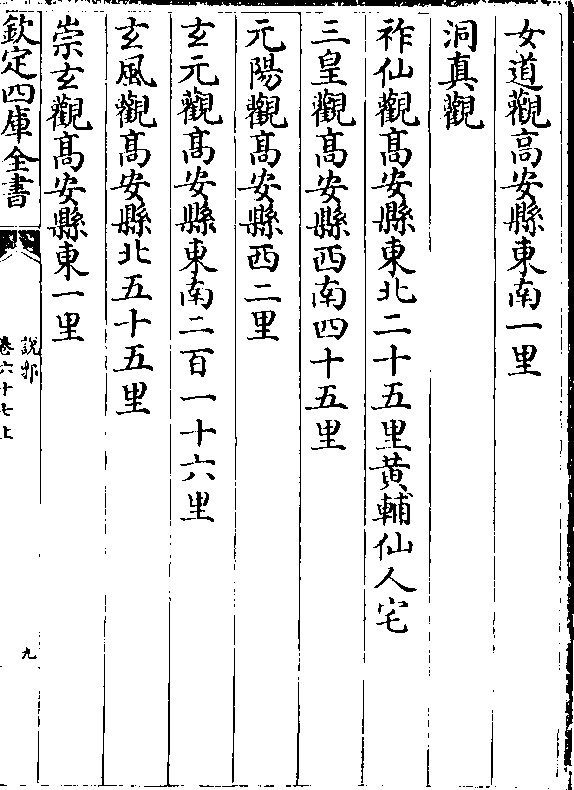 女道觀高安縣東南一里
洞真觀
祚仙觀髙安縣東北二十五里黄輔仙人宅
三皇觀髙安縣西南四十五里
元陽觀髙安縣西二里
玄元觀髙安縣東南二百一十六里
玄風觀髙安縣北五十五里
崇玄觀髙安縣東一里
欽定四庫全書
說郛
卷六十七上
九